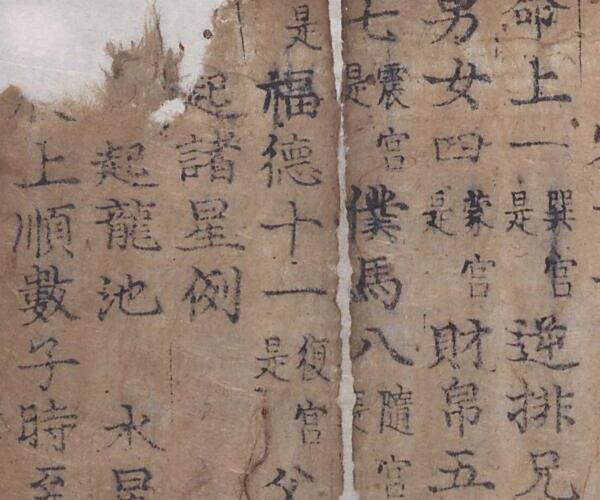 命上一是巽宫逆排兄
男女四是蒙宫財帛五
七是震宫僕馬八是隨宫
是福德十一是復宫父
起諸星例
起龍池 水星
上順數子時至